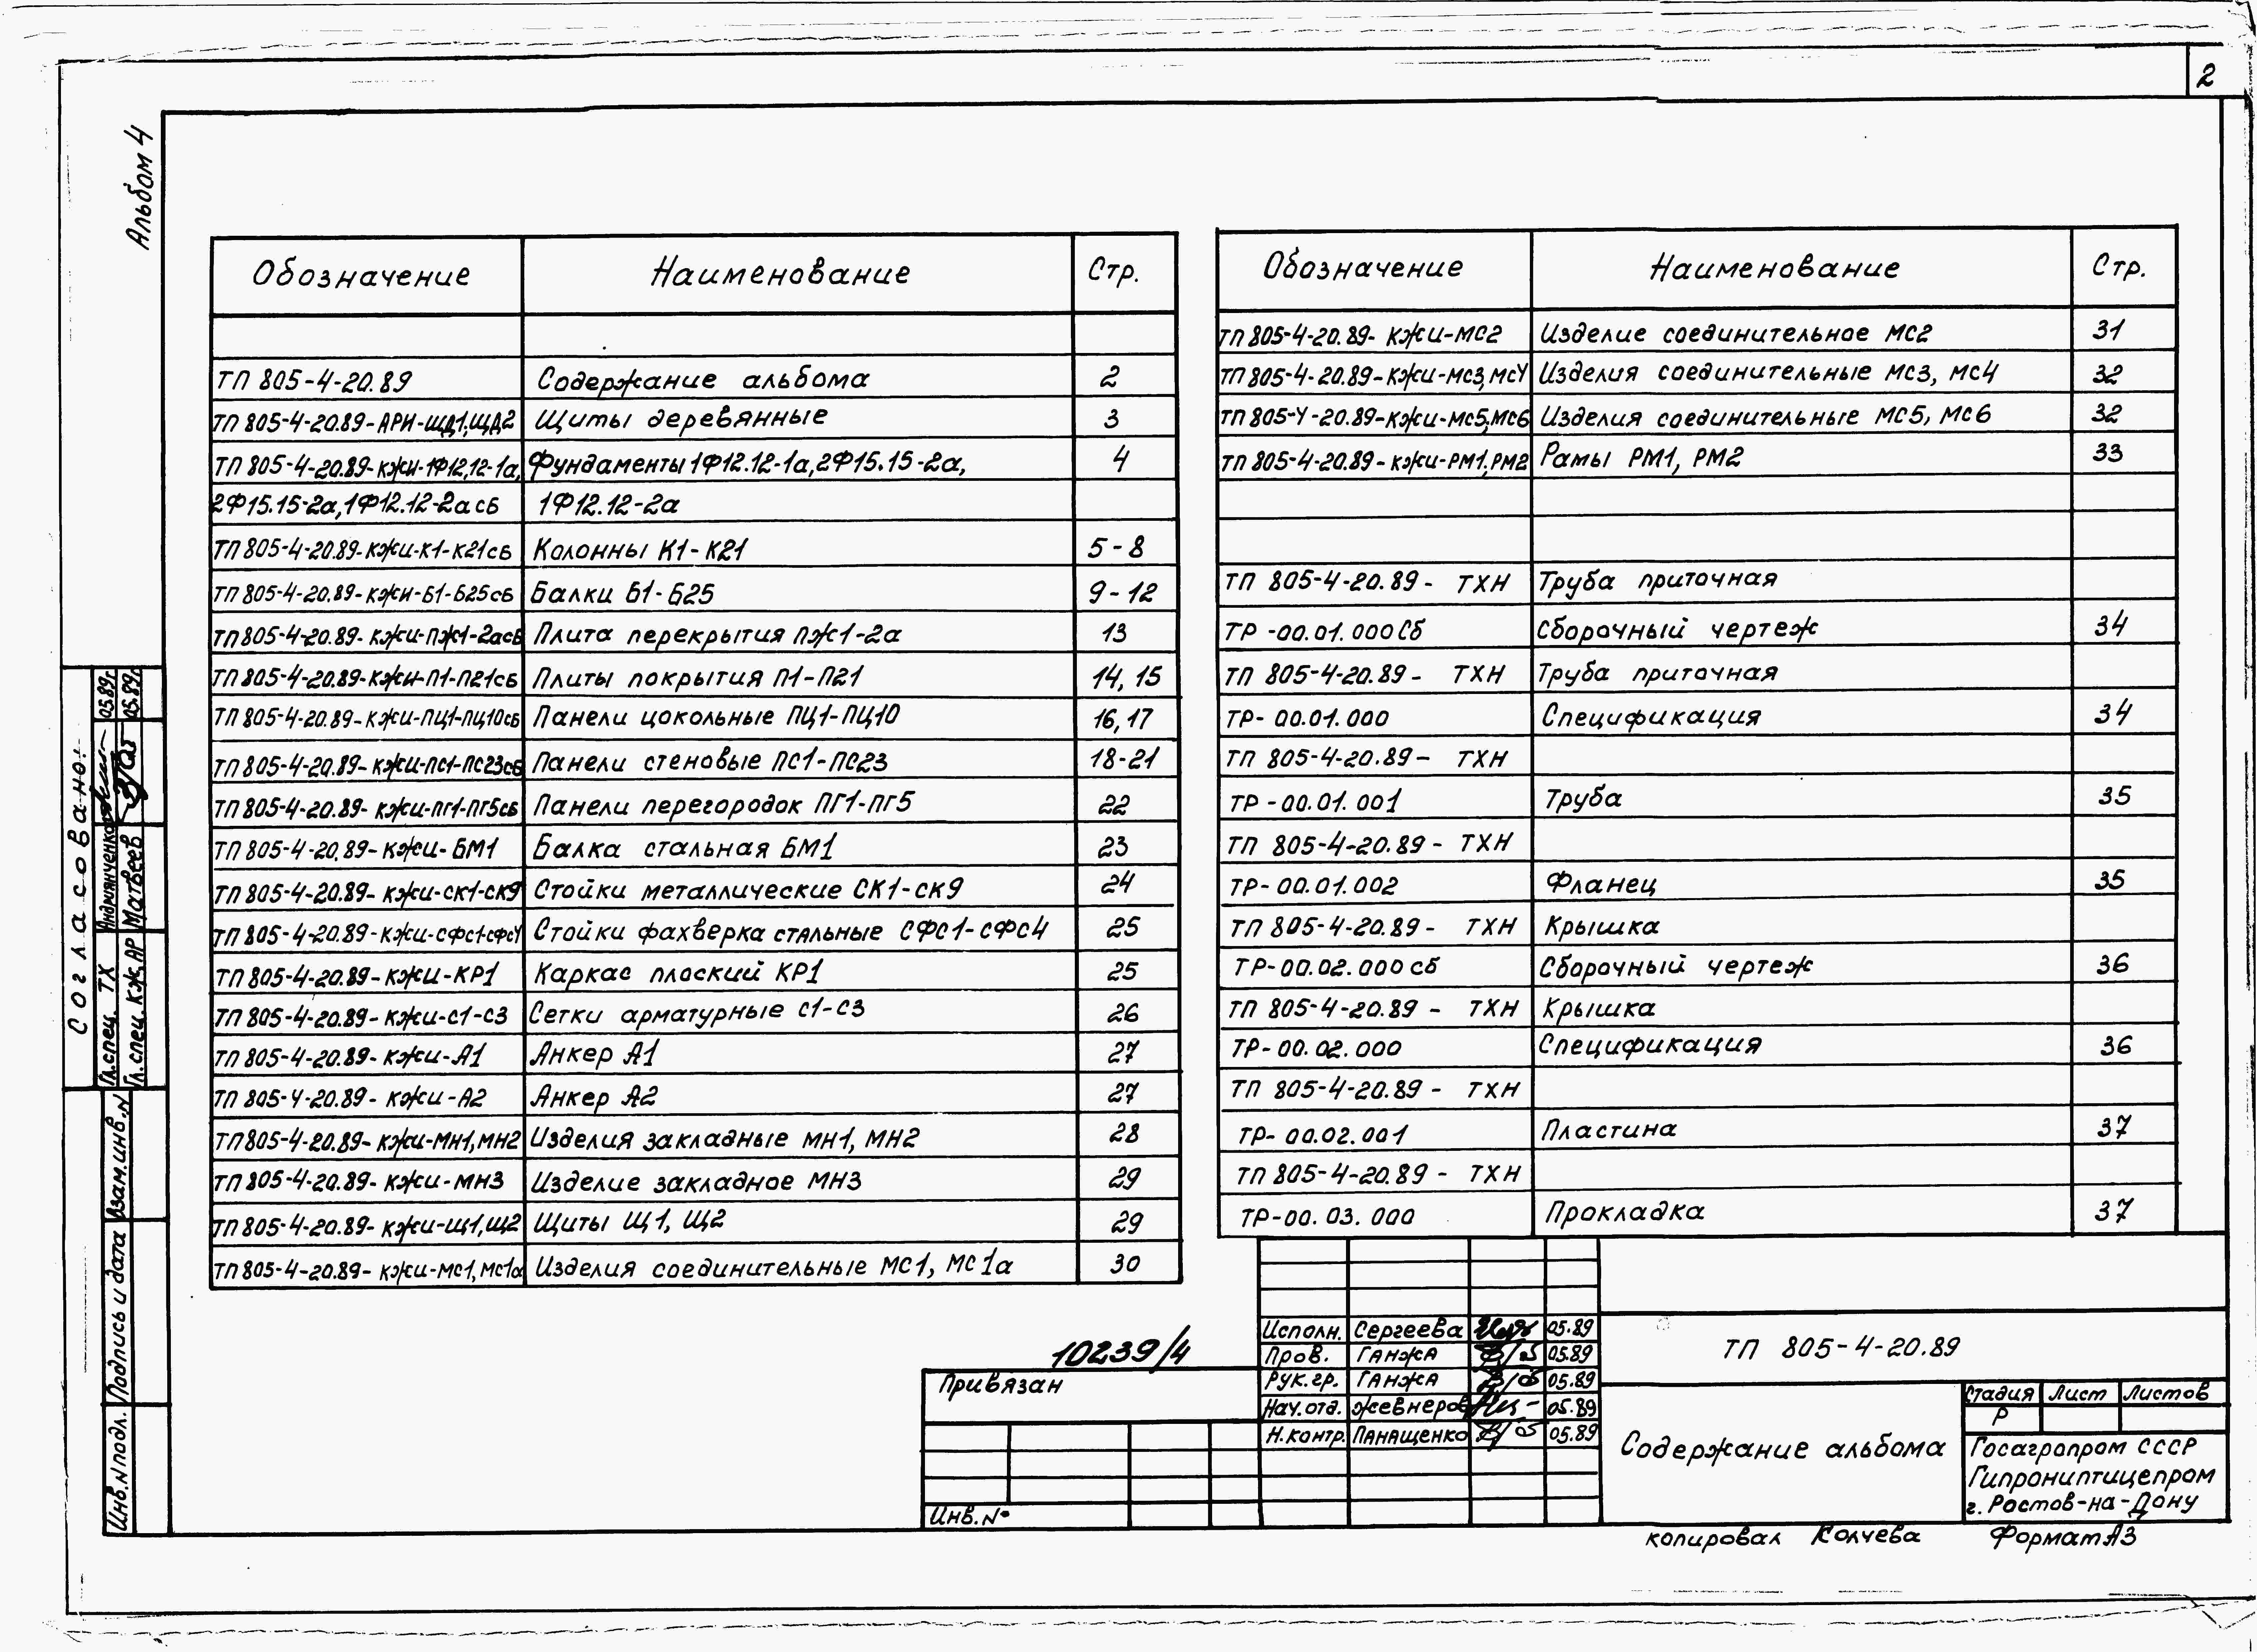 2
Альбом 4
Обозначение Наименование Стр.
ТП 805-4-20.89 Содержание альбома 2
ТП 805-4-20.89-АРИ-ЩД1,ЩД2 Щиты деревянные 3
ТП 805-4-20.89-КЖИ-1Ф12.12-1а, Фундаменты 1Ф12.12-1а, 2Ф15.15-2а, 4
2Ф15.15-2а, 1Ф12.12-2а сб 1Ф12.12-2а
ТП 805-4-20.89-КЖИ-К1-К21сб Колонны К1-К21 5-8
ТП 805-4-20.89-КЖИ-Б1-Б25сб Балки Б1-Б25 9-12
ТП 805-4-20.89-КЖИ-ПЖ1-2асб Плита перекрытия ПЖ1-2а 13
ТП 805-4-20.89-КЖИ-П1-П21сб Плиты покрытия П1-П21 14, 15
ТП 805-4-20.89-КЖИ-ПЦ1-ПЦ10сб Панели цокольные ПЦ1-ПЦ10 16, 17
ТП 805-4-20.89-КЖИ-ПС1-ПС23сб Панели стеновые ПС1-ПС23 18-21
ТП 805-4-20.89-КЖИ-ПГ1-ПГ5сб Панели перегородок ПГ1-ПГ5 22
ТП 805-4-20.89-КЖИ-БМ1 Балка стальная БМ1 23
ТП 805-4-20.89-КЖИ-СК1-СК9 Стойки металлические СК1-СК9 24
ТП 805-4-20.89-КЖИ-СФС1-СФС4 Стойки фахверка стальные СФС1-СФС4 25
ТП 805-4-20.89-КЖИ-КР1 Каркас плоский КР1 25
ТП 805-4-20.89-КЖИ-С1-С3 Сетки арматурные С1-С3 26
ТП 805-4-20.89-КЖИ-А1 Анкер А1 27
ТП 805-4-20.89-КЖИ-А2 Анкер А2 27
ТП 805-4-20.89-КЖИ-МН1, МН2 Изделия закладные МН1, МН2 28
ТП 805-4-20.89-КЖИ-МН3 Изделие закладное МН3 29
ТП 805-4-20.89-КЖИ-Щ1, Щ2 Щиты Щ1, Щ2 29
ТП 805-4-20.89-КЖИ-МС1, МС1а Изделия соединительные МС1, МС1а 30
Обозначение Наименование Стр.
ТП 805-4-20.89-КЖИ-МС2 Изделие соединительное МС2 31
ТП 805-4-20.89-КЖИ-МС3, МС4 Изделия соединительные МС3, МС4 32
ТП 805-4-20.89-КЖИ-МС5, МС6 Изделия соединительные МС5, МС6 32
ТП 805-4-20.89-КЖИ-РМ1, РМ2 Рамы РМ1, РМ2 33
ТП 805-4-20.89- ТХН Труба приточная
ТР-00.01.000 Сб Сборочный чертеж 34
ТП 805-4-20.89- ТХН Труба приточная
ТР-00.01.000 Спецификация 34
ТП 805-4-20.89- ТХН
ТР-00.01.001 Труба 35
ТП 805-4-20.89- ТХН
ТР-00.01.002 Фланец 35
ТП 805-4-20.89- ТХН Крышка
ТР-00.02.000 сб Сборочный чертеж 36
ТП 805-4-20.89- ТХН Крышка
ТР-00.02.000 Спецификация 36
ТП 805-4-20.89- ТХН
ТР-00.02.001 Пластина 37
ТП 805-4-20.89- ТХН
ТР-00.03.000 Прокладка 37
Согласовано:
Гл.спец. ТХ Андриянченко 05.89
Гл.спец. КЖ, АР Матвеев 05.89
Взам.инв.N
Подпись и дата
Инв.N подл.
10239/4
Привязан
Инв.N°
Исполн. Сергеева 05.89
Пров. Ганжа 05.89
Рук.гр. Ганжа 05.89
Нач.отд. Жевнеров 05.89
Н.контр. Панащенко 05.89
ТП 805-4-20.89
Содержание альбома
Стадия Лист Листов
Р
Госагропром СССР
Гипрониптицепром
г. Ростов-на-Дону
копировал Колчева Формат А3